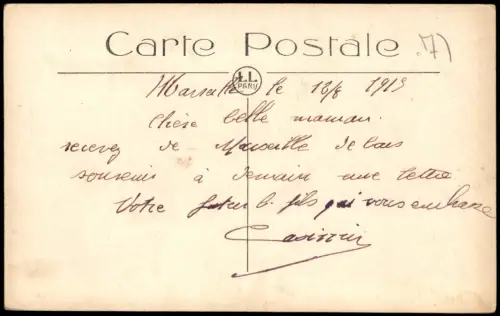 Carte Postale .7)
LL
Marseille le 13/8 1913
Chère belle maman.
recevez de Marseille de bons
souvenir à demain une lettre
Votre futur b. fils qui vous embrasse
Casimir